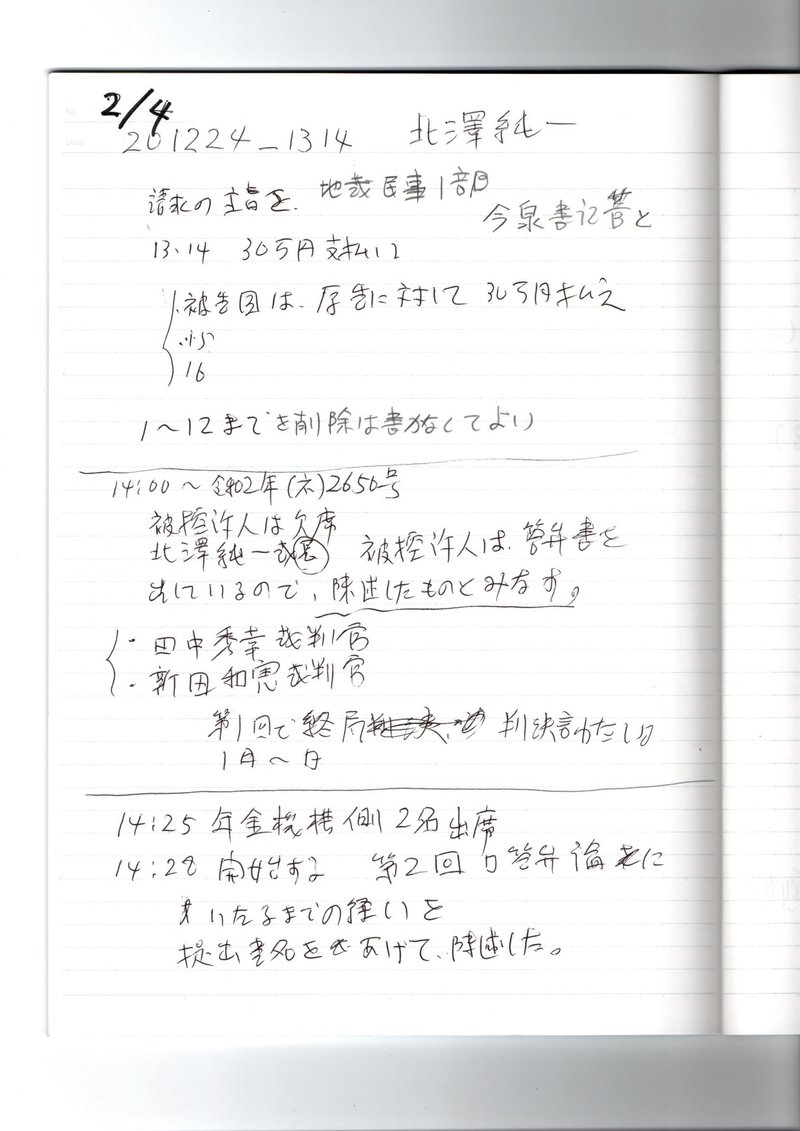 2/4
No.
Date
201224_1314 北澤純一
請求の主旨を、地裁民事1部
今泉書記菅と
13.14 30万円支払いに
被告国は、原告に対して30万円払え
15
16
1〜12までを削除は書かなくてよい
14:00〜 令02年(ネ)2656号
被控訴人は欠席
北澤純一裁長 被控訴人は、答弁書を
出しているので、陳述したものとみなす。
・田中秀幸裁判官
・新田和憲裁判官
第1回で終局 判決言わたし日
1月〜日
14:25 年金機構側2名出席
14:28 開始する 第2回口答弁論に
いたるまでの経いを
提出書名をあげて、陳述した。